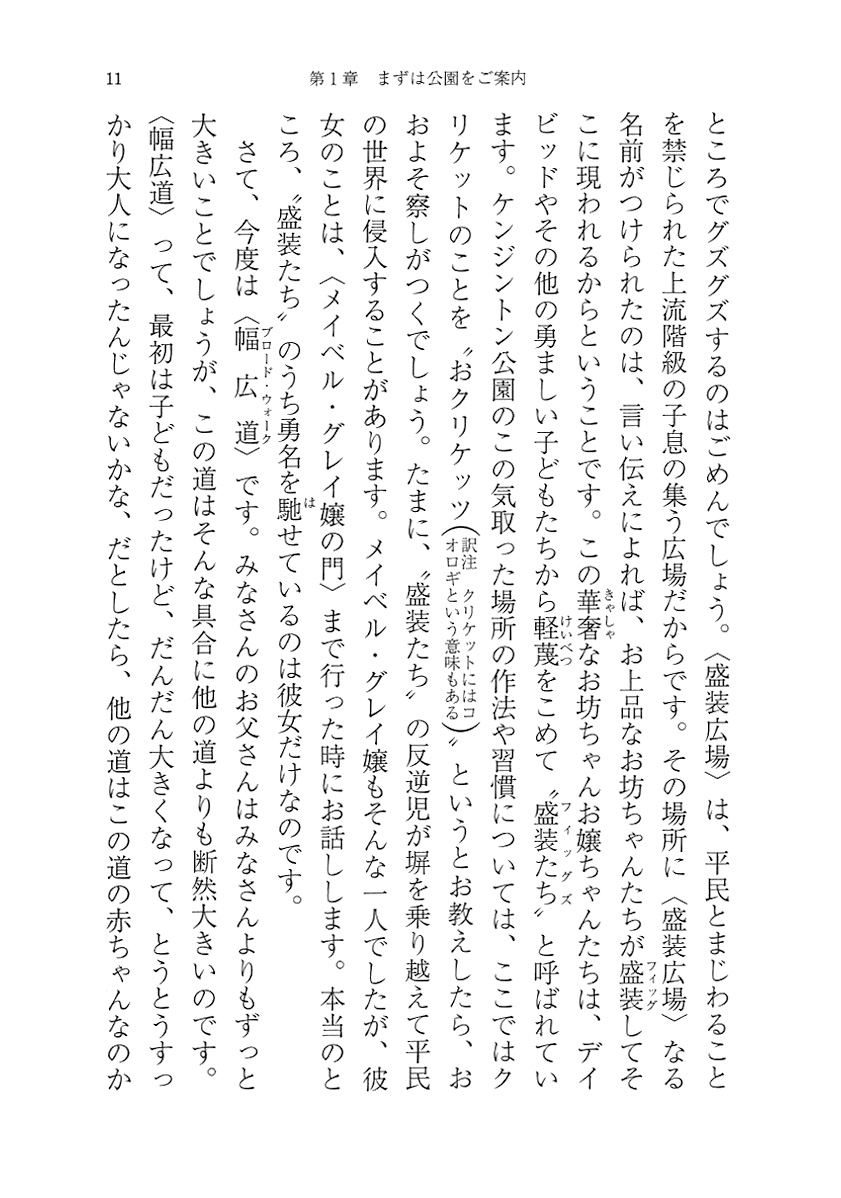 11
第1章　まずは公園をご案内
ところでグズグズするのはごめんでしょう。〈盛装広場〉は、平民とまじわること
を禁じられた上流階級の子息の集う広場だからです。その場所に〈盛装広場〉なる
名前がつけられたのは、言い伝えによれば、お上品なお坊ちゃんたちが盛装してそ
フィッグ
こに現われるからということです。この華奢なお坊ちゃんお嬢ちゃんたちは、デイ
きゃしゃ
ビッドやその他の勇ましい子どもたちから軽蔑をこめて〝盛装たち〟と呼ばれてい
けいべつ
フィッグズ
ます。ケンジントン公園のこの気取った場所の作法や習慣については、ここではク
リケットのことを〝おクリケッツ(訳注　クリケットにはコオロギという意味もある)〟というとお教えしたら、お
およそ察しがつくでしょう。たまに、〝盛装たち〟の反逆児が塀を乗り越えて平民
の世界に侵入することがあります。メイベル・グレイ嬢もそんな一人でしたが、彼
女のことは、〈メイベル・グレイ嬢の門〉まで行った時にお話しします。本当のと
ころ、〝盛装たち〟のうち勇名を馳せているのは彼女だけなのです。
は
さて、今度は〈幅広道〉です。みなさんのお父さんはみなさんよりもずっと
ブロード・ウォーク
大きいことでしょうが、この道はそんな具合に他の道よりも断然大きいのです。
〈幅広道〉って、最初は子どもだったけど、だんだん大きくなって、とうとうすっ
かり大人になったんじゃないかな、だとしたら、他の道はこの道の赤ちゃんなのか